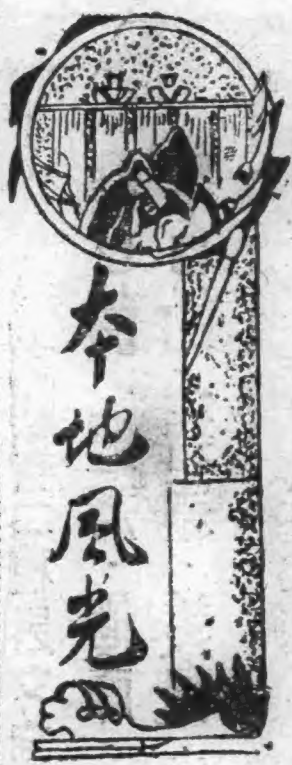 本地風光